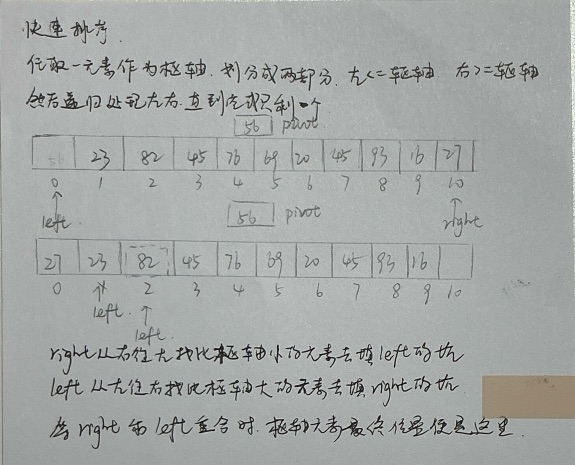 快速排序.
任取一元素作为枢轴. 划分成两部分. 左<=枢轴 右>=枢轴
然后递归处理左右.直到空或只剩一个
56 pivot.
56 23 82 45 76 69 20 45 93 16 27
0 1 2 3 4 5 6 7 8 9 10
left. right
56 pivot
27 23 82 45 76 69 20 45 93 16
0 1 2 3 4 5 6 7 8 9 10
left.
left.
right从右往左找比枢轴小的元素去填left的坑
left从左往右找比枢轴大的元素去填right的坑
当right和left重合时.枢轴元素最终位置便是这里.